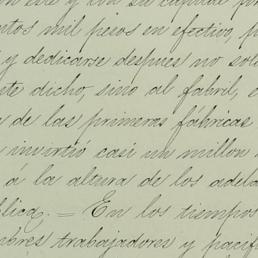 este y con su capital
ntos mil pesos en efectivo, p
y dedicarse despues no solo
te dicho, sino al fabril, e
de las primeras fábricas
invirtió casi un millon
á la altura de los adela
blica. = En los tiempos
mbres trabajadores y pacif